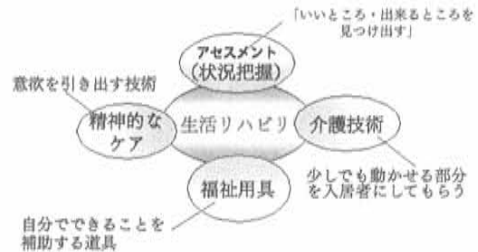 「いいところ・出来るところを
見つけ出す」
アセスメント
(状況把握)
意欲を引き出す技術
精神的な
ケア
生活リハビリ
介護技術
少しでも動かせる部分
を入居者にしてもらう
福祉用具
自分でできることを
補助する道具